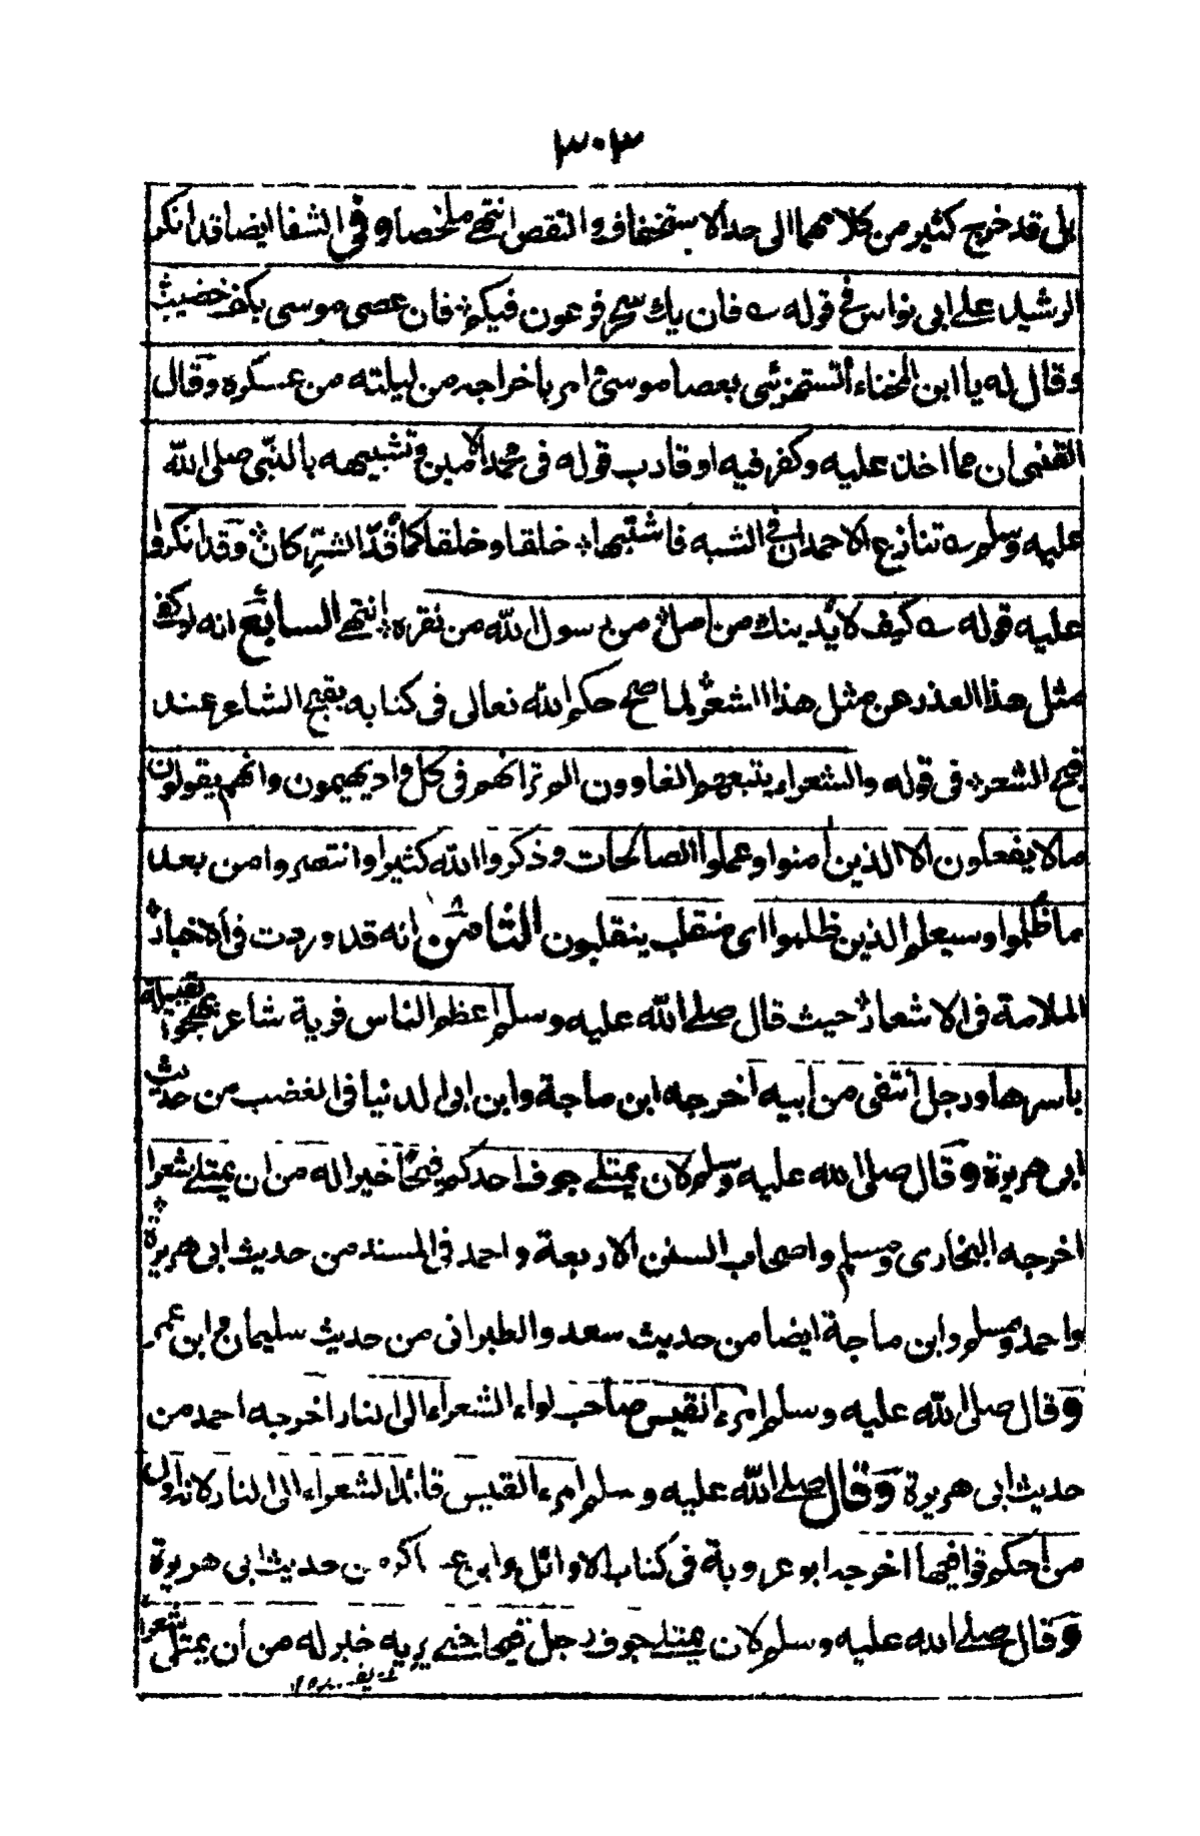 ٣٠٣
بل قد خرج كثير من كلامهما الى حد الاستخفاف والنقص انتهى ملخصا وفى الشفا ايضا قد انكر
الرشيد على ابى نواس فى قوله فان يك سحر فرعون فيكم فان عصى موسى بكف خضيب
وقال له يا ابن اللخناء أتستهزئى بعصا موسى امر باخراجه من ليلته من عسكره وقال
القتبى ان مما اخذ عليه وكفر فيه او قارب قوله فى محمد الامين وتشبيهه بالنبى صلى الله
عليه وسلم تنازع الاحمدان فى الشبه فاشتبها خلقا وخلقا كما قد الشراكان وقد انكروا
عليه قوله كيف لا يدينك من امل من رسول الله من نفره انتهى السابع انه لو كفى
مثل هذا العذر عن مثل هذا الشعر لما صح حكم الله تعالى فى كتابه بقبح الشاعر عند
قبح الشعر فى قوله والشعراء يتبعهم الغاوون الم تر انهم فى كل واد يهيمون وانهم يقولون
ما لا يفعلون الا الذين امنوا وعملوا الصالحات وذكروا الله كثيرا وانتصروا من بعد
ما ظلموا وسيعلم الذين ظلموا اى منقلب ينقلبون الثامن انه قد وردت فى الاخبار
الملامة فى الاشعار حيث قال صلى الله عليه وسلم اعظم الناس فرية شاعر يهجوا القبيلة
باسرها ورجل انتفى من ابيه اخرجه ابن ماجة وابن ابى الدنيا فى الغضب من حديث
ابى هريرة وقال صلى الله عليه وسلم لان يمتلے جوف احدكم قيحا خير اله من ان يمتلے شعرا
اخرجه البخارى ومسلم واصحاب السنن الاربعة واحمد فى المسند من حديث ابى هريرة
واحمد ومسلم وابن ماجة ايضا من حديث سعد والطبرانى من حديث سليمان وابن عمر
وقال صلى الله عليه وسلم امرء القيس صاحب لواء الشعراء الى النار اخرجه احمد من
حديث ابى هريرة وقال صلى الله عليه وسلم امرء القيس قائد الشعراء الى النار لانه اول
من احكم قوافيها اخرجه ابو عروبة فى كتاب الاوائل وابن عساكر من حديث ابى هريرة
وقال صلى الله عليه وسلم لان يمتلے جوف رجل قيحا حتى يريه خير له من أن يمتلى شعرا